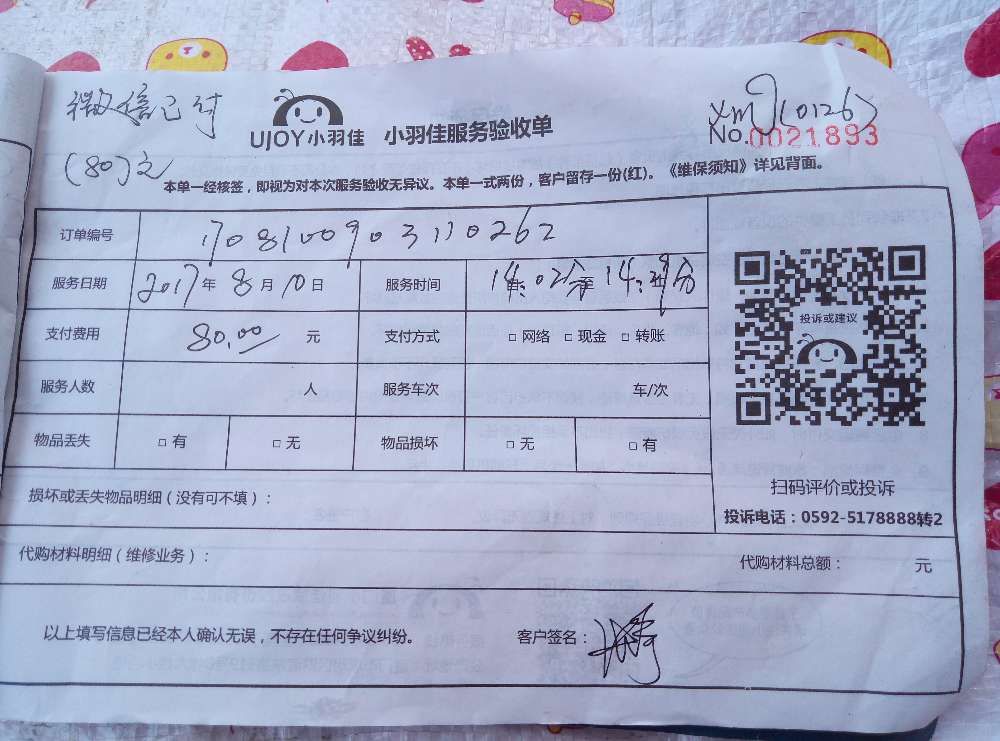 微信已付
(80)元
UJOY小羽佳 小羽佳服务验收单
xm (0126)
No.0021893
本单一经核签，即视为对本次服务验收无异议。本单一式两份，客户留存一份(红)。《维保须知》详见背面。
订单编号 170810090311０262
服务日期 2017年8月10日 服务时间 14:02分至14:29分
支付费用 80.00 元 支付方式 □ 网络 □ 现金 □ 转账
服务人数 人 服务车次 车/次
物品丢失 □ 有 □ 无 物品损坏 □ 无 □ 有
投诉或建议
扫码评价或投诉
投诉电话：0592-5178888转2
损坏或丢失物品明细（没有可不填）：
代购材料明细（维修业务）： 代购材料总额： 元
以上填写信息已经本人确认无误，不存在任何争议纠纷。 客户签名：